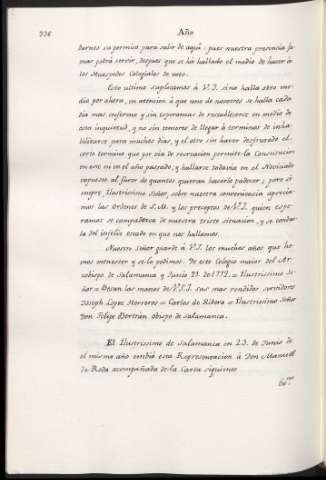 336 Año
darnos su permiso para salir de aqui: pues nuestra presencia ja
mas podrá servir, despues que se ha hallado el medio de hacer á
los Huespedes Colegiales de voto.
Esto ultimo suplicamos á V.I. sino halla otro me-
dio por ahora, en atencion á que uno de nosotros se halla cada
dia mas enfermo y sin esperanzas de restablecerse en medio de
esta inquietud, y no sin temores de llegar á terminos de inha-
bilitarse para muchos dias, y el otro sin haver disfrutado el
corto termino que por via de recreacion permite la Constitucion
en este ni en el año pasado, y hallarse todavia en el Noviciado
expuesto al furor de quantos quieran hacerle padecer; pero si
empre, Ilustrisimo Señor, sobre nuestra conveniencia aprecia-
mos las ordenes de S.M. y los preceptos de V.I. quien espe-
ramos se compadezca de nuestra triste situacion, y se condue-
la del infeliz estado en que nos hallamos.
Nuestro Señor guarde á V.I. los muchos años que he-
mos menester y se lo pedimos. De este Colegio maior del Ar-
zobispo de Salamanca y Junio 21 de 1772. = Ilustrissimo Se-
ñor = Besan las manos de V.S.I. sus mas rendidos servidores
Joseph Lopez Herreros = Carlos de Ribera = Ilustrissimo Señor
Don Felipe Bertrán obispo de Salamanca.
El Ilustrissimo de Salamanca en 23. de Junio de
el mismo año embió esta Representacion á Don Manuel
de Roda acompañada de la Carta siguiente